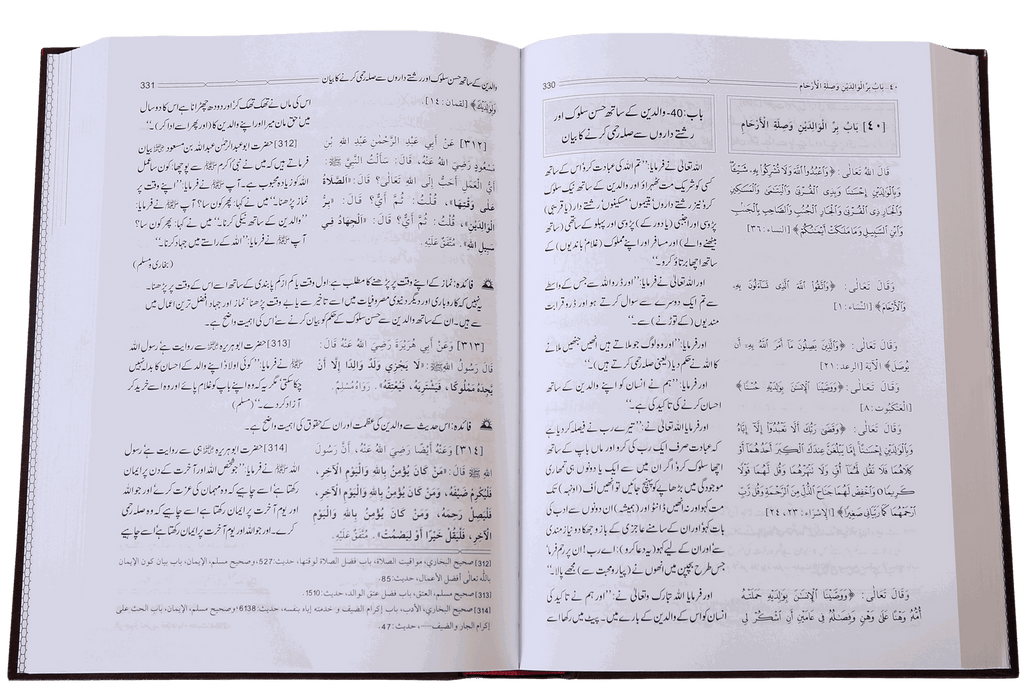 ٤٠- بَابُ بِرِّ الْوَالِدَيْنِ وَصِلَةِ الْأَرْحَامِ
330
[٤٠] بَابُ بِرِّ الْوَالِدَيْنِ وَصِلَةِ الْأَرْحَامِ
قَالَ اللهُ تَعَالٰى: ﴿وَاعْبُدُوا اللّٰهَ وَلَا تُشْرِكُوا بِهٖ شَيْئًا
وَبِالْوَالِدَيْنِ إِحْسٰنًا وَبِذِى الْقُرْبٰى وَالْيَتٰمٰى وَالْمَسٰكِيْنِ
وَالْجَارِ ذِى الْقُرْبٰى وَالْجَارِ الْجُنُبِ وَالصَّاحِبِ بِالْجَنْبِ
وَابْنِ السَّبِيْلِ وَمَا مَلَكَتْ أَيْمٰنُكُمْ﴾ [النساء: ٣٦]
وَقَالَ تَعَالٰى: ﴿وَاتَّقُوا اللّٰهَ الَّذِى تَسَاءَلُونَ بِهٖ
وَالْأَرْحَامَ﴾ [النِّسَاء: ١]
وَقَالَ تَعَالٰى: ﴿وَالَّذِينَ يَصِلُونَ مَا أَمَرَ اللّٰهُ بِهٖ أَن
يُوصَلَ﴾ الْآيَةَ [الرعد: ٢١]
وَقَالَ تَعَالٰى: ﴿وَوَصَّيْنَا الْإِنْسٰنَ بِوَالِدَيْهِ حُسْنًا﴾
[الْعَنْكَبُوت: ٨]
وَقَالَ تَعَالٰى: ﴿وَقَضٰى رَبُّكَ أَلَّا تَعْبُدُوا إِلَّا إِيَّاهُ
وَبِالْوَالِدَيْنِ إِحْسٰنًا إِمَّا يَبْلُغَنَّ عِنْدَكَ الْكِبَرَ أَحَدُهُمَا أَوْ
كِلَاهُمَا فَلَا تَقُل لَّهُمَا أُفٍّ وَلَا تَنْهَرْهُمَا وَقُل لَّهُمَا قَوْلًا
كَرِيمًا ۝ وَاخْفِضْ لَهُمَا جَنَاحَ الذُّلِّ مِنَ الرَّحْمَةِ وَقُل رَّبِّ
ارْحَمْهُمَا كَمَا رَبَّيَانِى صَغِيرًا﴾ [الإسراء: ٢٣، ٢٤]
وَقَالَ تَعَالٰى: ﴿وَوَصَّيْنَا الْإِنْسٰنَ بِوَالِدَيْهِ حَمَلَتْهُ
أُمُّهُ وَهْنًا عَلٰى وَهْنٍ وَفِصٰلُهُ فِى عَامَيْنِ أَنِ اشْكُرْ لِى
باب:40- والدین کے ساتھ حسن سلوک اور
رشتے داروں سے صلہ رحمی کرنے کا بیان
اللہ تعالیٰ نے فرمایا: ’’تم اللہ کی عبادت کرو اس کے ساتھ
کسی کو شریک مت ٹھہراؤ اور والدین کے ساتھ نیک سلوک
کرو نیز رشتے داروں، یتیموں، مسکینوں، رشتے دار (یا قریبی)
پڑوسی اور اجنبی (یا دور کے) پڑوسی اور پہلو کے ساتھی (ساتھ
بیٹھنے والے) اور مسافر اور اپنے مملوک (غلام باندیوں) کے
ساتھ اچھا برتاؤ کرو۔‘‘
اور اللہ تعالیٰ نے فرمایا: ’’اور ڈرو اللہ سے جس کے واسطے
سے تم ایک دوسرے سے سوال کرتے ہو اور ڈرو قرابت
مندیوں (کے توڑنے) سے۔‘‘
اور فرمایا: ’’اور وہ لوگ جو ملاتے ہیں انھیں جنھیں ملانے
کا اللہ نے حکم دیا (یعنی صلہ رحمی کرتے ہیں)۔‘‘
اور فرمایا: ’’ہم نے انسان کو اپنے والدین کے ساتھ
احسان کرنے کی تاکید کی ہے۔‘‘
اور فرمایا اللہ تعالیٰ نے: ’’تیرے رب نے فیصلہ کر دیا ہے
کہ عبادت صرف ایک رب کی کرو اور ماں باپ کے ساتھ
اچھا سلوک کرو اگر ان میں سے ایک یا دونوں ہی تمھاری
موجودگی میں بڑھاپے کو پہنچ جائیں تو انھیں اُف (اونہہ) تک
مت کہو اور نہ انھیں ڈانٹو اور (ہمیشہ) ان دونوں سے ادب کی
بات کہو اور ان کے سامنے عاجزی کے بازو جھکا دو نیازمندی
سے اور ان کے لیے کہو (یہ دعا کرو): اے رب! ان پر رحم فرما
جس طرح بچپن میں انھوں نے (پیار و محبت سے) مجھے پالا۔‘‘
اور فرمایا اللہ تبارک وتعالیٰ نے: ’’اور ہم نے تاکید کی
انسان کو اس کے والدین کے بارے میں۔ پیٹ میں رکھا اسے
والدین کے ساتھ حسن سلوک اور رشتے داروں سے صلہ رحمی کرنے کا بیان
331
وَلِوَالِدَيْكَ﴾ [لقمان: ١٤].
اس کی ماں نے تھک تھک کر اور دودھ چھڑانا ہے اس کا دو سال
میں، حق مان میرا اور اپنے والدین کا (اور پھر اسے ادا کر)۔‘‘
[٣١٢] عَنْ أَبِي عَبْدِ الرَّحْمٰنِ عَبْدِ اللهِ بْنِ
مَسْعُودٍ رَضِيَ اللهُ عَنْهُ، قَالَ: سَأَلْتُ النَّبِيَّ ﷺ:
أَيُّ الْعَمَلِ أَحَبُّ إِلَى اللهِ تَعَالٰى؟ قَالَ: «الصَّلَاةُ
عَلٰى وَقْتِهَا»، قُلْتُ: ثُمَّ أَيٌّ؟ قَالَ: «بِرُّ
الْوَالِدَيْنِ»، قُلْتُ: ثُمَّ أَيٌّ؟ قَالَ: «الْجِهَادُ فِي
سَبِيلِ اللهِ». مُتَّفَقٌ عَلَيْهِ.
[312] حضرت ابو عبدالرحمٰن عبداللہ بن مسعود رضی اللہ عنہ بیان
فرماتے ہیں کہ میں نے نبی اکرم ﷺ سے پوچھا: کون سا عمل
اللہ کو زیادہ محبوب ہے۔ آپ ﷺ نے فرمایا: ’’اپنے وقت پر
نماز پڑھنا۔‘‘ میں نے کہا: پھر کون سا؟ آپ ﷺ نے فرمایا:
’’والدین کے ساتھ نیکی کرنا۔‘‘ میں نے کہا: پھر کون سا؟
آپ ﷺ نے فرمایا: ’’اللہ کے راستے میں جہاد کرنا۔‘‘
(بخاری و مسلم)
فائدہ: نماز کے اپنے وقت پر پڑھنے کا مطلب ہے اول وقت یا کم از کم پابندی کے ساتھ اس کے وقت پر پڑھنا۔
یہ نہیں کہ کاروباری اور دیگر دنیوی مصروفیات میں اسے تاخیر سے یا بے وقت پڑھنا، نماز اور جہاد افضل ترین اعمال میں
سے ہیں۔ ان کے ساتھ والدین سے حسن سلوک کے حکم کو بیان کرنے سے اس کی اہمیت واضح ہے۔
[٣١٣] وَعَنْ أَبِي هُرَيْرَةَ رَضِيَ اللهُ عَنْهُ قَالَ:
قَالَ رَسُولُ اللهِ ﷺ: «لَا يَجْزِي وَلَدٌ وَالِدًا إِلَّا أَنْ
يَجِدَهُ مَمْلُوكًا، فَيَشْتَرِيَهُ، فَيُعْتِقَهُ». رَوَاهُ مُسْلِمٌ.
[313] حضرت ابو ہریرہ رضی اللہ عنہ سے روایت ہے، رسول اللہ
ﷺ نے فرمایا: ’’کوئی اولاد اپنے والد کے احسان کا بدلہ نہیں
چکا سکتی، مگر یہ کہ وہ اپنے باپ کو غلام پائے اور وہ اسے خرید کر
آزاد کر دے۔‘‘ (مسلم)
فائدہ: اس حدیث سے والدین کی عظمت اور ان کے حقوق کی اہمیت واضح ہے۔
[٣١٤] وَعَنْهُ أَيْضًا رَضِيَ اللهُ عَنْهُ، أَنَّ رَسُولَ
اللهِ ﷺ قَالَ: «مَنْ كَانَ يُؤْمِنُ بِاللهِ وَالْيَوْمِ الْآخِرِ،
فَلْيُكْرِمْ ضَيْفَهُ، وَمَنْ كَانَ يُؤْمِنُ بِاللهِ وَالْيَوْمِ الْآخِرِ،
فَلْيَصِلْ رَحِمَهُ، وَمَنْ كَانَ يُؤْمِنُ بِاللهِ وَالْيَوْمِ
الْآخِرِ، فَلْيَقُلْ خَيْرًا أَوْ لِيَصْمُتْ». مُتَّفَقٌ عَلَيْهِ.
[314] حضرت ابو ہریرہ رضی اللہ عنہ ہی سے روایت ہے، رسول
اللہ ﷺ نے فرمایا: ’’جو شخص اللہ اور آخرت کے دن پر ایمان
رکھتا ہے، اسے چاہیے کہ وہ مہمان کی عزت کرے اور جو اللہ
اور یوم آخرت پر ایمان رکھتا ہے اسے چاہیے کہ وہ صلہ رحمی
کرے۔ اور جو اللہ اور یوم آخرت پر ایمان رکھتا ہے، اسے چاہیے
[312] صحيح البخاري، مواقيت الصلاة، باب فضل الصلاة لوقتها، حديث:527، وصحيح مسلم، الإيمان، باب بيان كون الإيمان
بالله تعالى أفضل الأعمال، حديث:85.
[313] صحيح مسلم، العتق، باب فضل عتق الوالد، حديث:1510.
[314] صحيح البخاري، الأدب، باب إكرام الضيف و خدمته إياه بنفسه، حديث:6138، وصحيح مسلم، الإيمان، باب الحث على
إكرام الجار والضيف....، حديث:47.